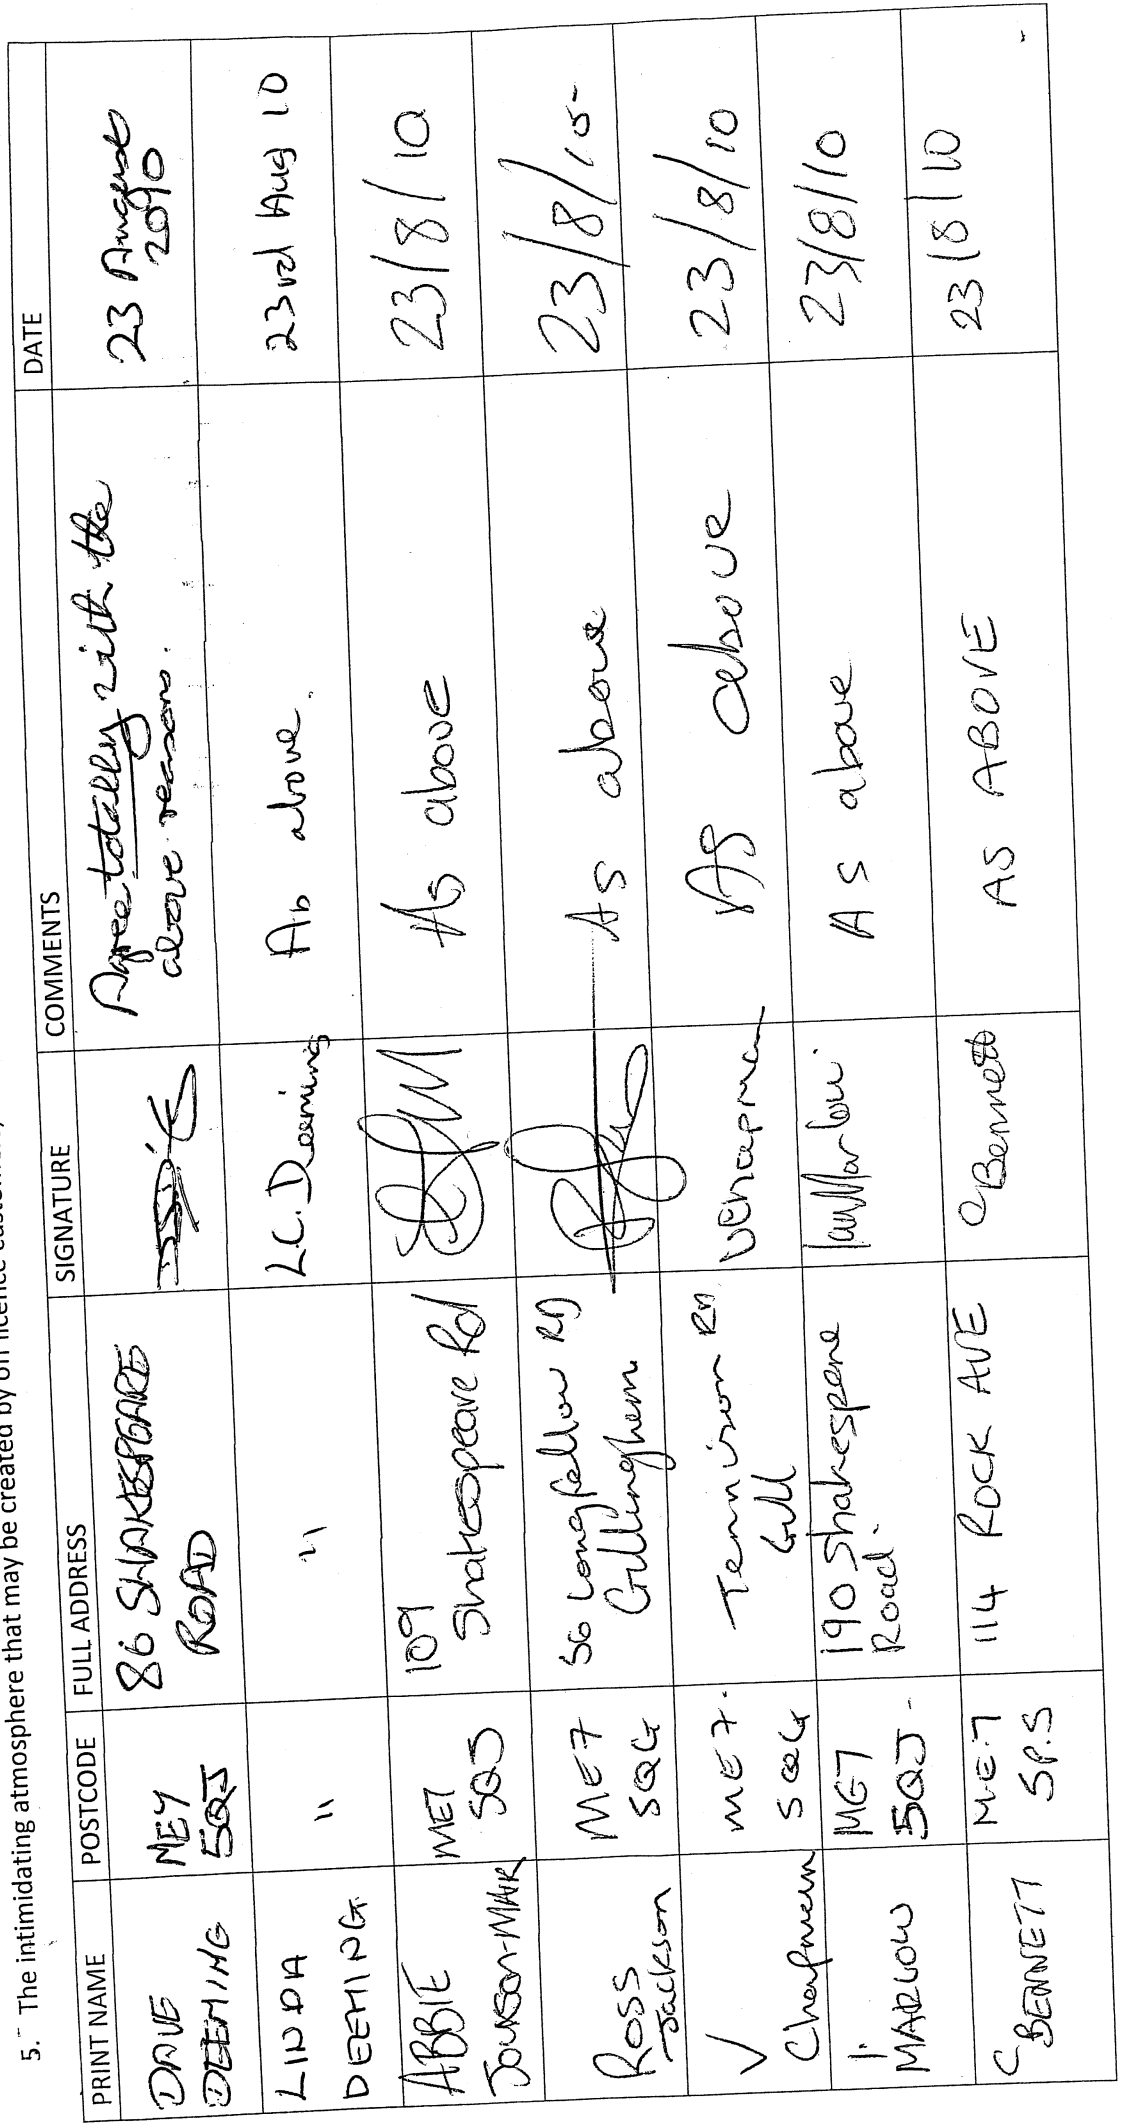 5. The intimidating atmosphere that may be created by off licence
PRINT NAME POSTCODE FULL ADDRESS SIGNATURE COMMENTS DATE
DAVE
DEEMING
MEY
5QJ
86 SHAKESPEARE
ROAD
Agree totally with the
above reasons.
23 August
2010
LINDA
DEEMING
"
"
L.C. Deeming
As above.
23rd Aug 10
ABBIE
JACKSON-MAIR
ME7
5QJ
109
Shakespeare Rd
As above
23/8/10
ROSS
Jackson
ME7
5QG
56 Longfellow RD
Gillingham
As above
23/8/10
V
Chapman
ME7.
5QG
Tennison RD
Gill
VChapman
As above
23/8/10
I.
MARLOW
ME7
5QJ.
190 Shakespere
Road.
Ian Marlow.
As above
23/8/10
C
BENNETT
ME.7
5P.S
114 ROCK AVE
C Bennett
AS ABOVE
23/8/10